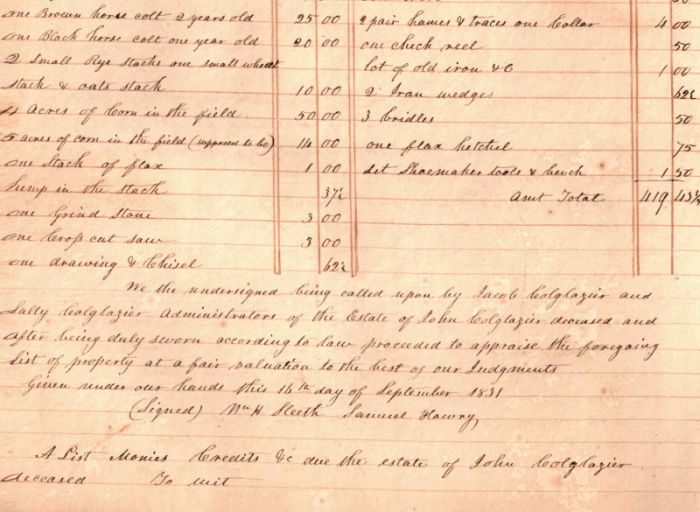 one Brown horse colt 2 years old 25 00
one Black horse colt one year old 20 00
2 Small Rye stacks one small wheat
stack & oats stack 10 00
4 Acres of Corn in the field 50 00
5 acres of corn in the field (supposed to be) 14 00
one Stack of flax 1 00
Hemp in the stack 37½
one Grind Stone 3 00
one Cross cut saw 3 00
one drawing & Chisel 62½
50
2 pair hames & traces one Collar 4 00
one check reel 50
lot of old iron &C 1 00
2 Iron wedges 62½
3 bridles 50
one flax hetchel 75
Set Shoemaker tools & bench 1 50
Amt Total 419 43¾
We the undersigned being called upon by Jacob Colglazier and
Sally Colglazier Administrators of the Estate of John Colglazier deceased and
after being duly sworn according to law proceeded to appraise the foregoing
List of property at a fair valuation to the best of our Judgments
Given under our hands this 14th day of September 1831
(Signed) Wm H Sleeth Samuel Howry
A List Monies Credits &c due the estate of John Colglazier
deceased To wit